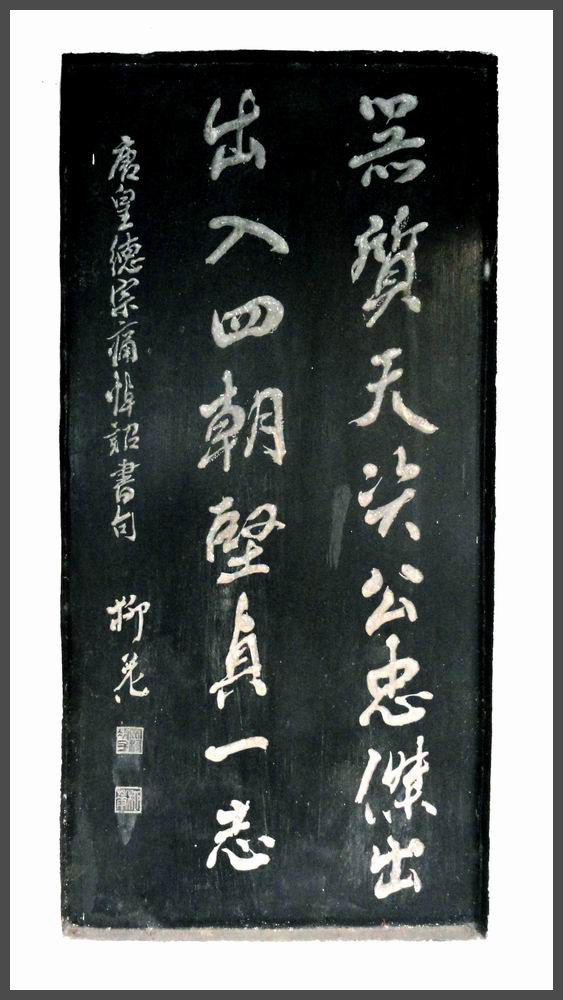 器質天资公忠傑出
出入四朝堅貞一志
唐皇德宗痛悼詔書句
柳苑